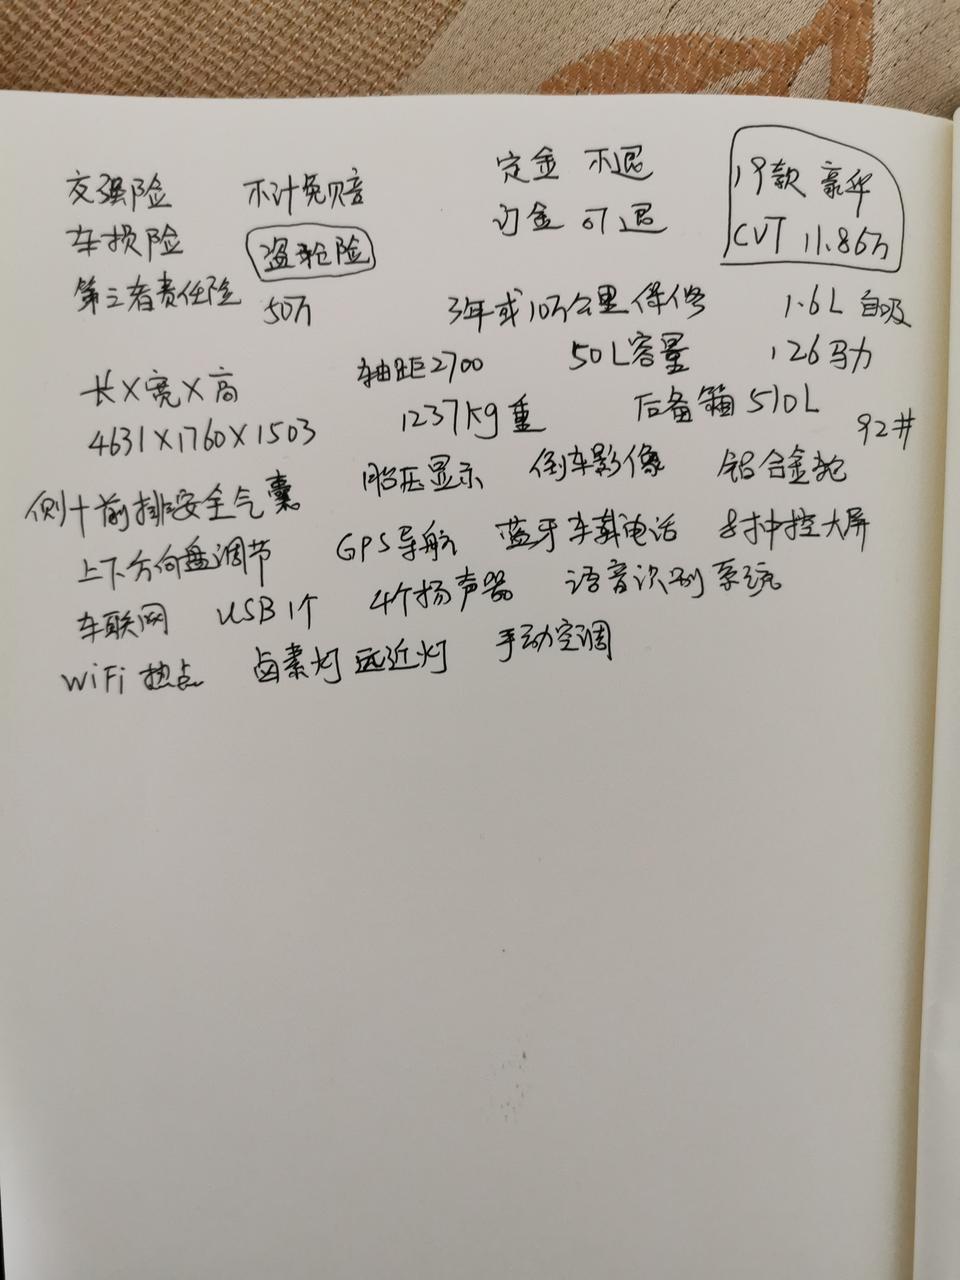 交强险 不计免赔 定金 不退 19款 豪华
车损险 盗抢险 订金 可退 CVT 11.86万
第三者责任险 50万 3年或10万公里保修 1.6L 自吸
长×宽×高 轴距2700 50L容量 126马力
4631×1760×1503 1237kg重 后备箱510L 92#
侧+前排安全气囊 胎压显示 倒车影像 铝合金轮
上下方向盘调节 GPS导航 蓝牙车载电话 8寸中控大屏
车联网 USB1个 4个扬声器 语音识别系统
WiFi热点 卤素灯远近灯 手动空调